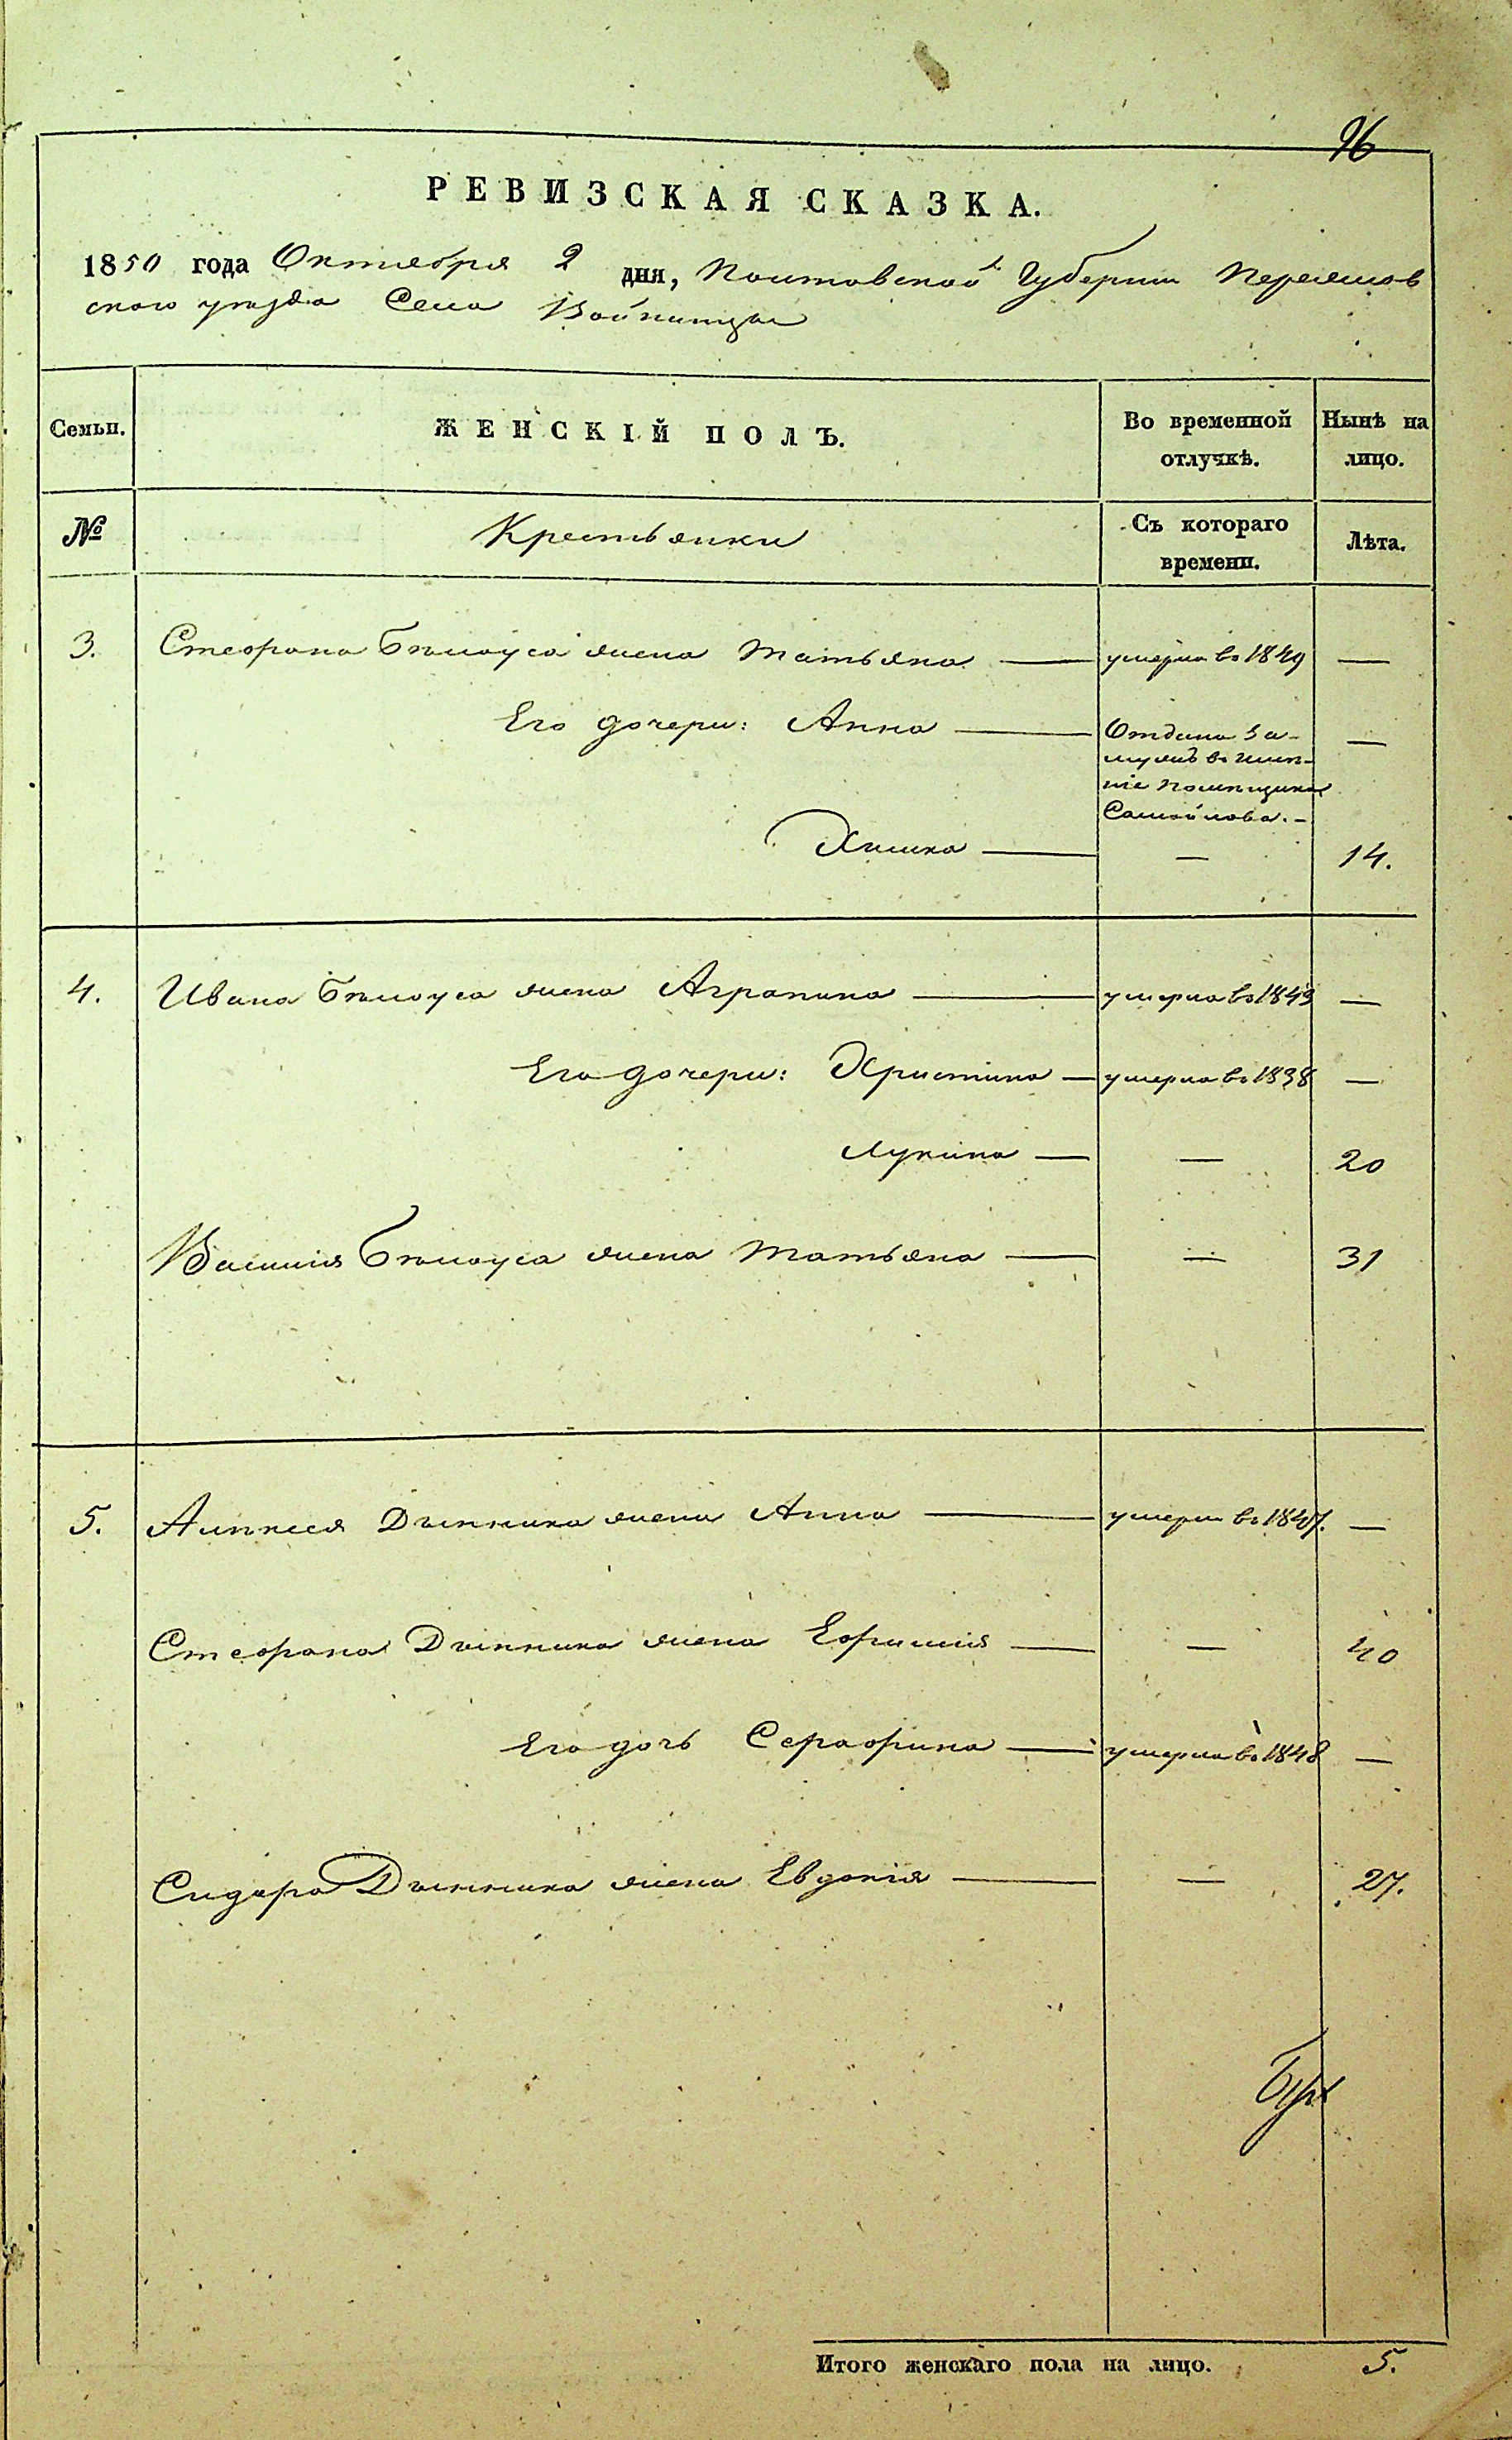 96
РЕВИЗСКАЯ СКАЗКА.
1850 года Октября 2 дня, Полтавской Губерніи Переяслов
ского уѣзда Села Войтовцы
Семьи. ЖЕНСКІЙ ПОЛЪ. Во временной отлучкѣ. Нынѣ на лицо.
№ Крестьянки Съ котораго времени. Лѣта.
3. Стефана Бѣлоуса жена Татьяна — умерла въ 1849 —
Его дочери: Анна — Отдана за- —
мужъ въ имѣ-
ніе помѣщика
Самойлова. –
Химка — — 14.
4. Ивана Бѣлоуса жена Аграпина — умерла въ 1849 —
Его дочери: Христина — умерла въ 1838 —
Лукина — — 20
Василія Бѣлоуса жена Татьяна — — 31
5. Алексея Дынника жена Анна — умерла въ 1847. —
Стефана Дынника жена Ефимія — — 40
Его дочь Серафима — умерла въ 1848 —
Сидора Дынника жена Евдокія — — 27.
Итого женскаго пола на лицо. 5.